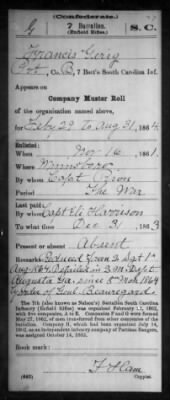 (Confederate.)
G 7 Battalion. S.C.
(Enfield Rifles)
Francis Gerry
Pvt, Co. B, 7 Batt'n South Carolina Inf.
Appears on
Company Muster Roll
of the organization named above,
for Feby 29 To Aug 31, 1864.
Enlisted:
When Nov 16, 1861.
Where Winnsboro
By whom Capt
Period The War
Last paid:
By whom Capt Harrison
To what time Dec 31, 1863
Present or absent Absent
Remarks: Reduced from 2 Sgt 1st
Aug 1864 Detailed in Dept
Augusta Ga. since 5 1864
by order of Genl. Beauregard
The 7th (also known as Nelson's) Battalion South Carolina
Infantry (Enfield Rifles) was organized February 1862,
with five companies, A to E. Companies F and G were formed
May 1862, of men transferred from other companies of the
battalion. Company H, which had been organized July 1862,
as an independent company of Partisan Rangers,
was assigned October 1862.
Book mark:
(642)
Copyist.